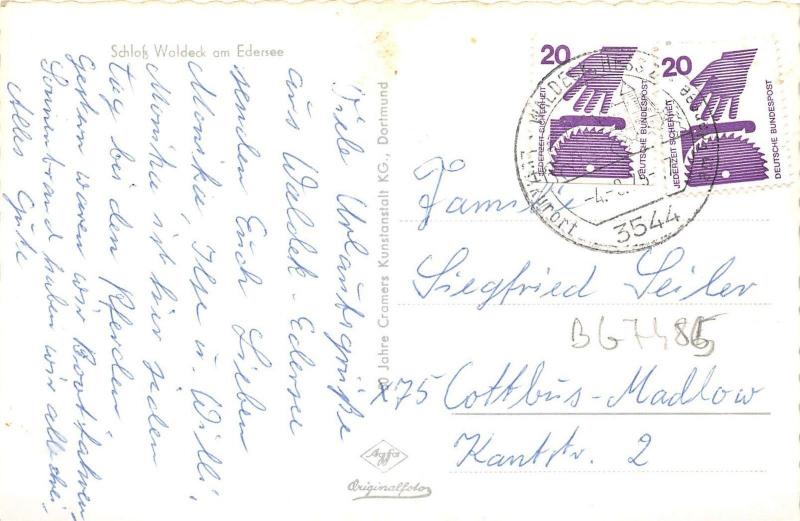 Schloß Waldeck am Edersee
Viele Urlaubsgrüße
aus Waldek-Edersee
senden Euch Lieben
Monika, Ilse u. Willi,
Monika ist hier jeden
tag bei den Pferden
Gestern waren wir Bootfahren,
Sonnenbrand haben wir alle drei.
Alles Gute
50 Jahre Cramers Kunstanstalt KG., Dortmund
20
JEDERZEIT SICHERHEIT
DEUTSCHE BUNDESPOST
20
JEDERZEIT SICHERHEIT
DEUTSCHE BUNDESPOST
3544
Familie
Siegfried Seiler
BG7485
x75 Cottbus-Madlow
Kantstr. 2
Agfa
Originalfoto